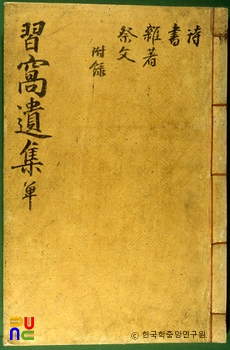 詩
書
雜著
祭文
附錄
習窩遺集 單
PUNC
© 한국학중앙연구원